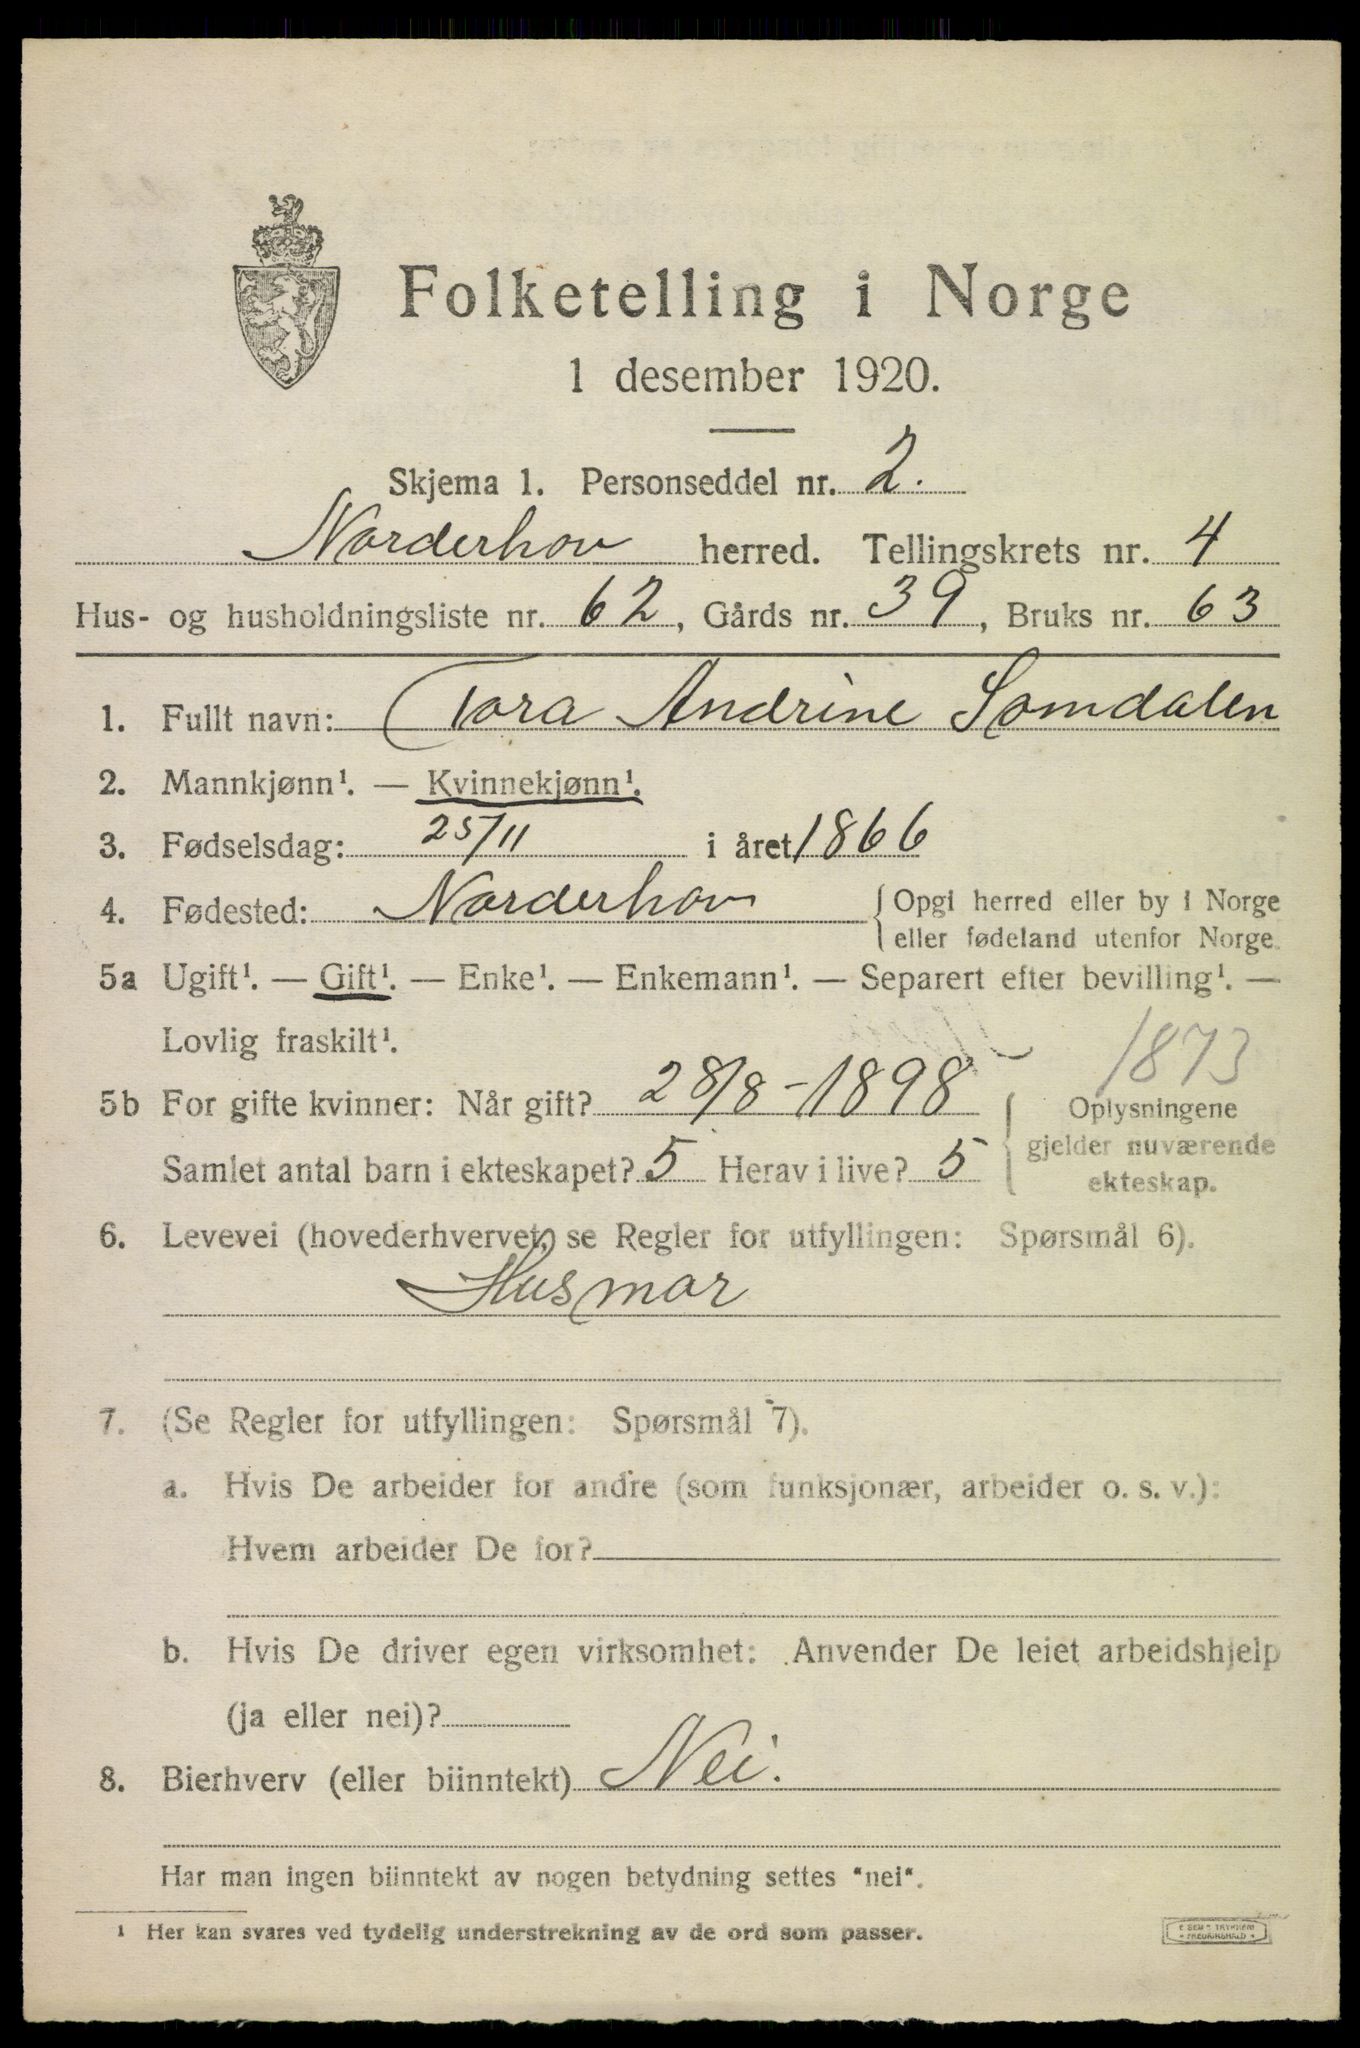 Folketelling i Norge
1 desember 1920.
Skjema 1. Personseddel nr. 2.
Norderhov herred. Tellingskrets nr. 4
Hus- og husholdningsliste nr. 62, Gårds nr. 39, Bruks nr. 63
1. Fullt navn: Tora Andrine Somdalen
2. Mannkjønn¹. — Kvinnekjønn¹.
3. Fødselsdag: 25/11 i året 1866
4. Fødested: Norderhov { Opgi herred eller by i Norge
eller fødeland utenfor Norge.
5a Ugift¹. — Gift¹. — Enke¹. — Enkemann¹. — Separert efter bevilling¹. —
Lovlig fraskilt¹.
1873
5b For gifte kvinner: Når gift? 28/8-1898 { Oplysningene
gjelder nuværende
ekteskap.
Samlet antal barn i ekteskapet? 5 Herav i live? 5
6. Levevei (hovederhvervet, se Regler for utfyllingen: Spørsmål 6).
Husmor
7. (Se Regler for utfyllingen: Spørsmål 7).
a. Hvis De arbeider for andre (som funksjonær, arbeider o. s. v.):
Hvem arbeider De for?
b. Hvis De driver egen virksomhet: Anvender De leiet arbeidshjelp
(ja eller nei)?
8. Bierhverv (eller biinntekt) Nei.
Har man ingen biinntekt av nogen betydning settes "nei".
¹ Her kan svares ved tydelig understrekning av de ord som passer.
E SEM'S TRYKKERI
FREDRIKSHALD